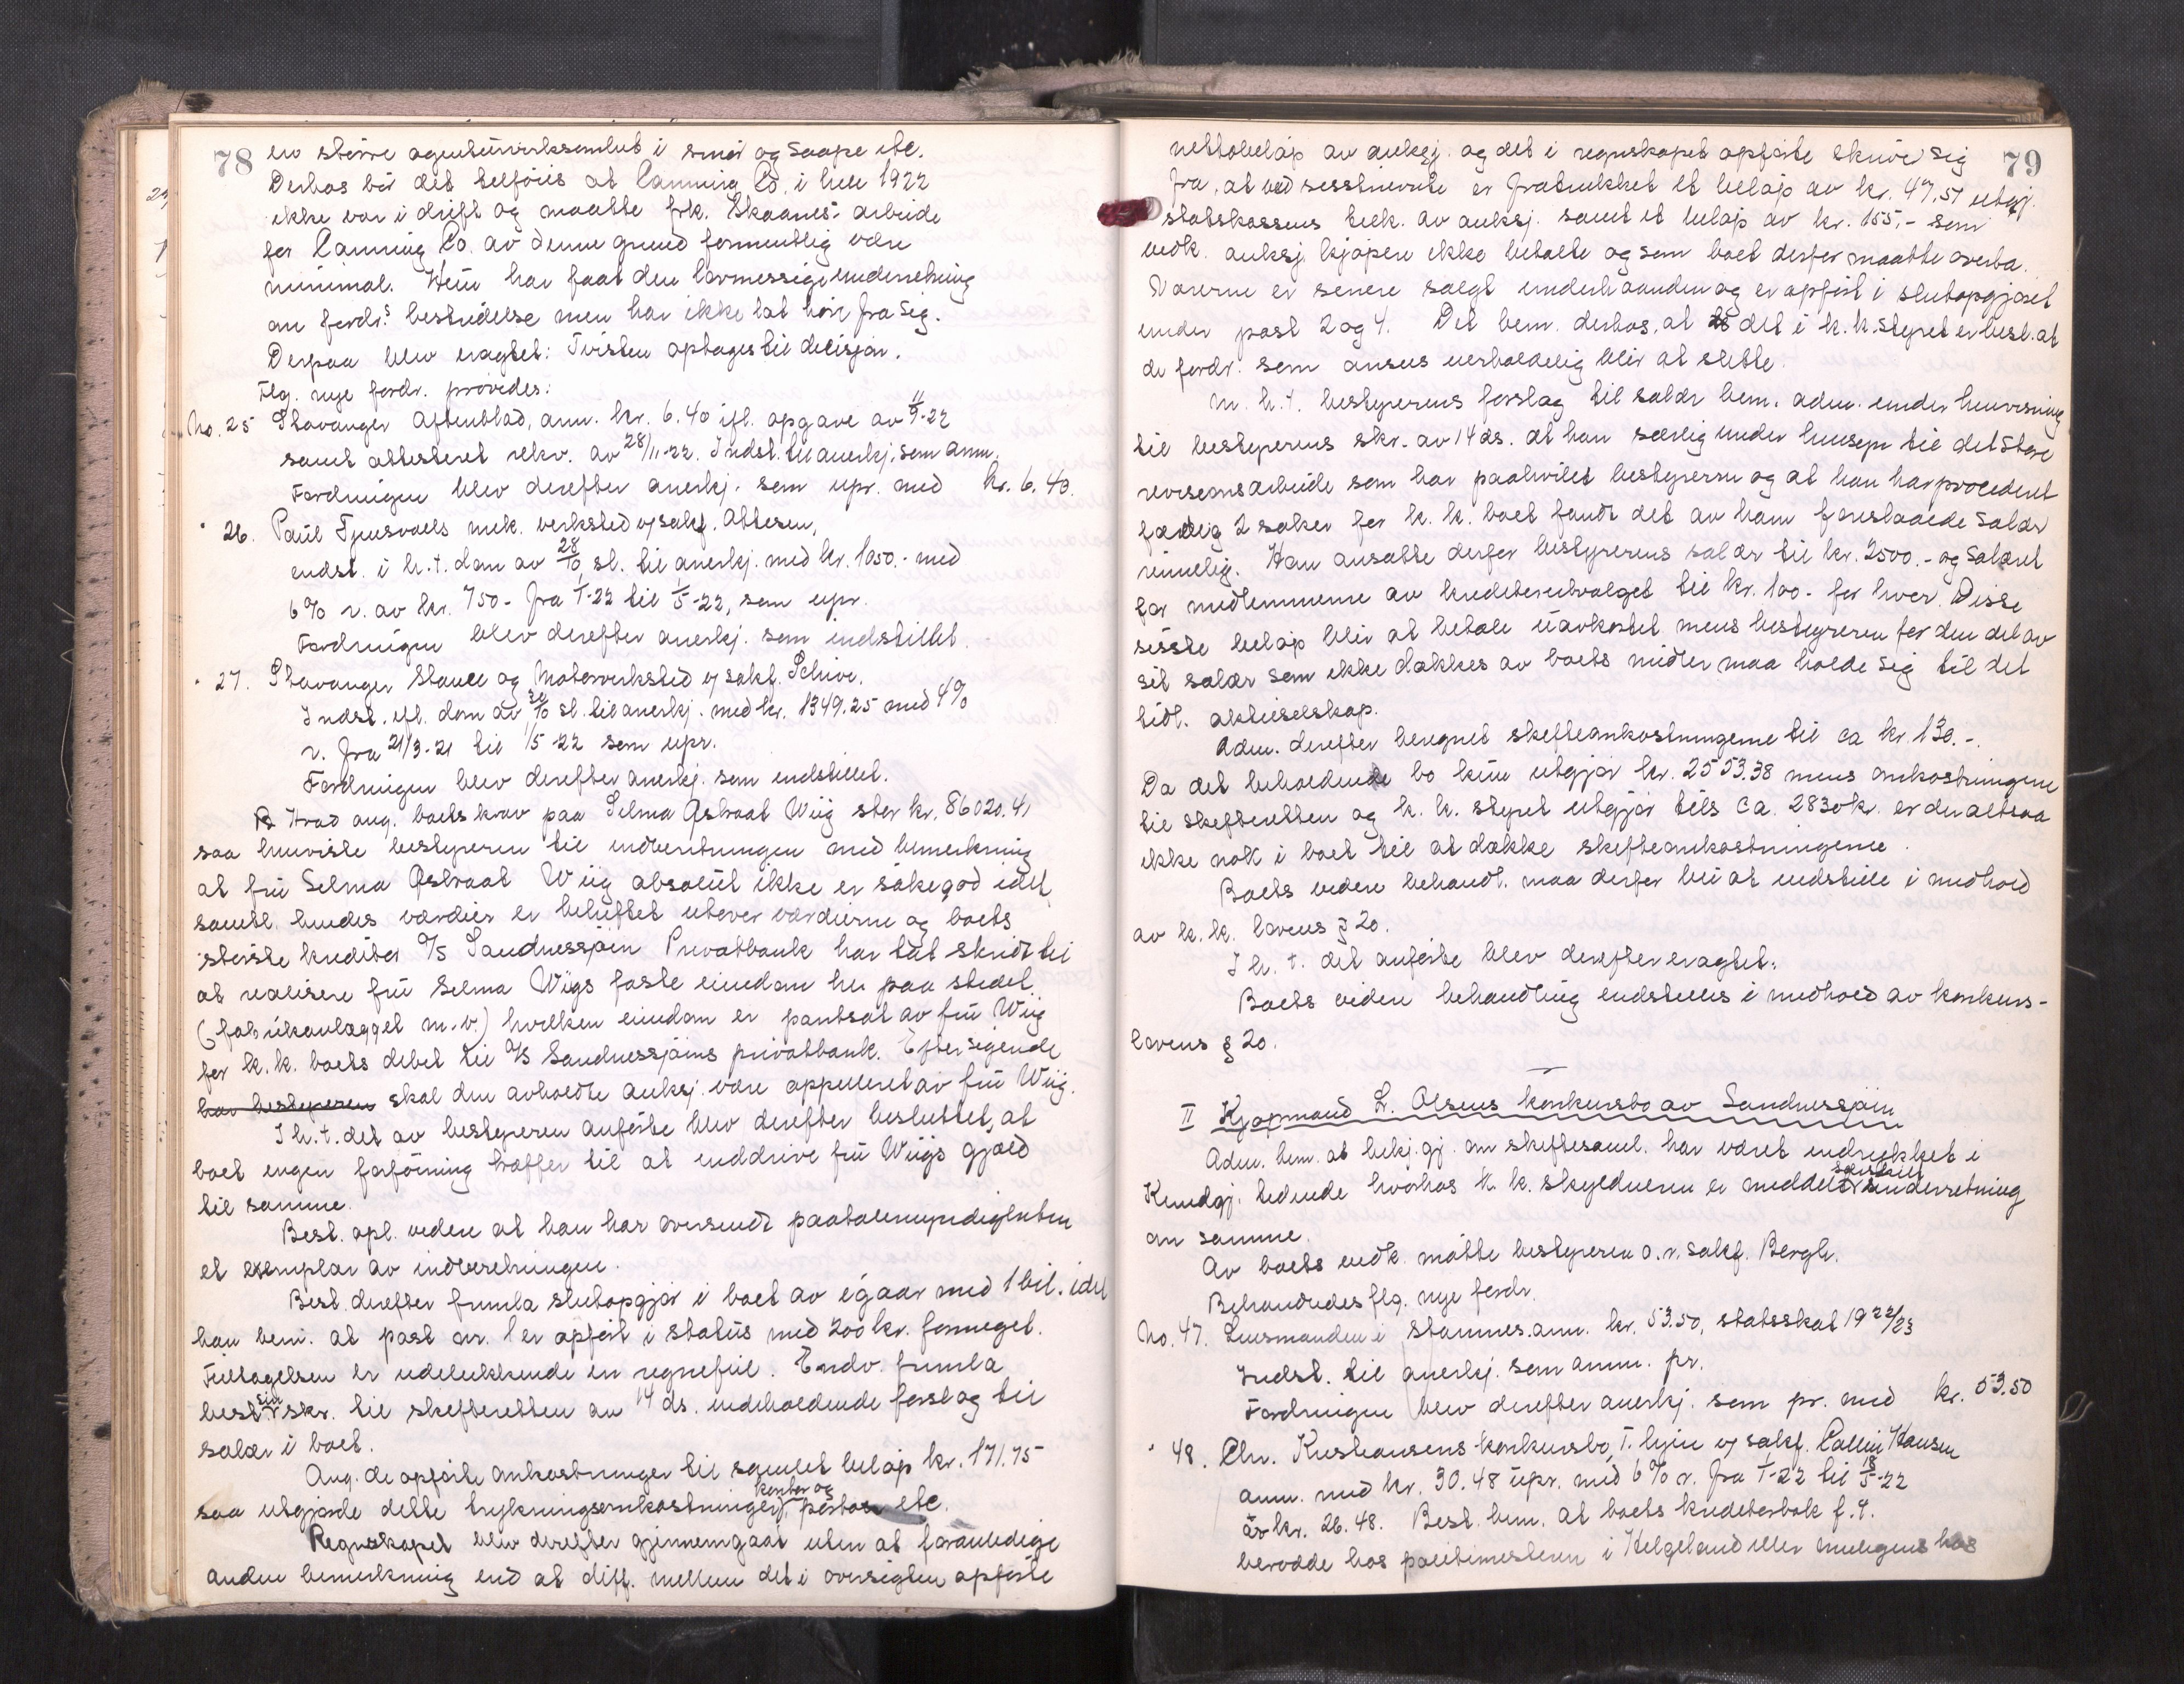 78
en større agenturvirksomhet i smør og saape etc.
Derhos bør det telføies at Canning Co. i hele 1922
ikke var i drift og maatte frk. Skaanes' arbeide
for Canning Co. av denne grund formentlig være
minimal. Hun har faat den lovmessige underretning
om fordr.s bestridelse men har ikke latt høre fra sig.
Derpaa blev eragtet: Tvisten optages til decisjon.
Flg. nye fordr. prøvedes:
No. 25 Stavanger Aftenblad, anm. kr. 6.40 ifl. opgave av 11/9-22
samt attesteret rekv. av 28/11-22. Indst. til anerkj. som anm.
Fordringen blev derefter anerkj. som upr. med kr. 6.40.
" 26. Paul Tjensvolls mek. verksted v/ sakf. Attesen,
indst. i h.t. dom av 28/10 sl. til anerkj. med kr. 1050.- med
6% r. av kr. 750.- fra 1/1-22 til 1/5-22, som upr.
Fordringen blev derefter anerkj. som indstillet.
" 27. Stavanger Stanse og Motorverksted v/ sakf. Schive.
Indst. ifl. dom av 30/10 sl. til anerkj. med kr. 1349.25 med 4%
r. fra 21/3-21 til 1/5-22 som upr.
Fordringen blev derefter anerkj. som indstillet.
Hvad ang. boets krav paa Selma Østraat Wiig stor kr. 86020.41
saa henviste bestyreren til indberetningen med bemerkning
at fru Selma Østraat Wiig absolut ikke er søkegod idet
samtl. hendes værdier er beheftet utover værdierne og boets
største kreditor A/S Sandnessjøen Privatbank har tat skridt til
at realisere fru Selma Wiigs faste eiendom her paa stedet
(fabrikanlægget m.v.) hvilken eiendom er pantsat av fru Wiig
for k.k. boets debet til A/S Sandnessjøens privatbank. Eftersigende
har bestyreren skal den avholdte auksj. være appelleret av fru Wiig.
I h.t. det av bestyreren anførte blev derefter besluttet, at
boet ingen forføining træffer til at inddrive fru Wiigs gjæld
til samme.
Best. opl. videre at han har oversendt paatalemyndigheten
et exemplar av indberetningen.
Best. derefter fremla slutopgjør i boet av igaar med 1 bil. idet
han bem. at post nr. 1 er opført i status med 200 kr. formeget.
Feiltagelsen er udelukkende en regnefeil. Endv. fremla
best. sin skr. til skifteretten av 14 ds. indeholdende forslag til
salær i boet.
Ang. de opførte omkostninger til samlet beløp kr. 171.75
saa utgjorde dette trykningsomkostninger, kontor og portoer etc.
Regnskapet blev derefter gjennemgaat uten at foranledige
anden bemerkning end at diff. mellem det i oversigten opførte
79
nettobeløp av auksj. og det i regnskapet opførte skriver sig
fra, at ved sesstnævnte er fratrukket et beløp av kr. 47,51 utgj.
statskassens tilk. av auksj. samt et beløp av kr. 155,- som
vedk. auksj. kjøpere ikke betalte og som boet derfor maatte overta.
Varerne er senere solgt underhaanden og er opført i slutopgjøret
under post 2 og 4. Det bem. derhos, at det i k.k. styret er besl. at
de fordr. som ansees uerholdelig blir at slette.
M.h.t. bestyrerens forslag til salær bem. adm. under henvisning
til bestyrerens skr. av 14 ds. at han særlig under hensyn til det store
revisionsarbeide som har paahvilet bestyreren og at han har procederet
færdig 2 saker for k.k. boet fandt det av ham foreslaaede salær
rimelig. Han ansatte derfor bestyrerens salær til kr. 2500.- og salæret
for medlemmerne av kreditorutvalget til kr. 100.- for hver. Disse
sisste beløp blir at betale uavkortet mens bestyreren for den del av
sit salær som ikke dækkes av boets midler maa holde sig til det
tidl. aktieselskap.
Adm. derefter beregnet skifteomkostningerne til ca kr. 130.-.
Da det beholdende bo kun utgjør kr. 2553.38 mens omkostningerne
til skifteretten og k.k. styret utgjør tils. ca. 2830 kr. er der altsaa
ikke nok i boet til at dække skifteomkostningerne.
Boets videre behandl. maa derfor bli at indstille i medhold
av k.k. lovens § 20.
I h.t. det anførte blev derefter eragtet:
Boets videre behandling indstilles i medhold av konkurs-
lovens § 20.
II Kjøpmand L. Olsens konkursbo av Sandnessjøen
Adm. bem. at bekj.gj. om skiftesaml. har været indrykket i
Kundgj. tidende hvorhos k.k. skyldneren er meddelt særskilt underretning
om samme.
Av boets vedk. møtte bestyreren o.r. sakf. Bergh.
Behandledes flg. nye fordr.
No. 47. Lensmanden i Stamnes. anm. kr. 53.50, statsskat 1922/23
Indst. til anerkj. som anm. pr.
Fordringen blev derefter anerkj. som pr. med kr. 53.50
" 48. Chr. Kristiansens konkursbo, T. hjem v/ sakf. Collin Hansen
anm. med kr. 30.48 upr. med 6% r. fra 1/1-22 til 18/5-22
av kr. 26.48. Best. bem. at boets kreditorbok f.t.
berodde hos politimesteren i Helgeland eller muligens hos